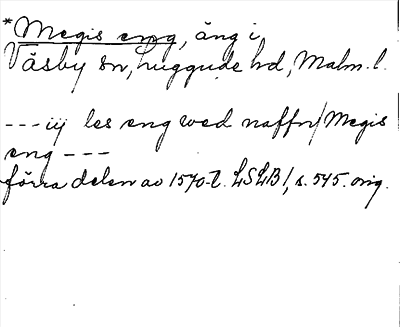 *Megis eng, äng i
Väsby sn, Luggude hd, Malm. l.
--- iij les eng wed naffn / Megis
eng ---
förra delen av 1570-t. LSLB 1, s. 545. orig.